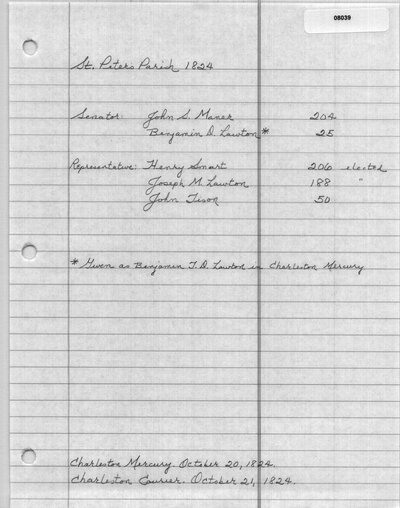 08039
St. Peters Parish 1824
Senator: John S. Maner 204
Benjamin D. Lawton* 25
Representative: Henry Smart 206 elected
Joseph M. Lawton 188 "
John Tison 50
* Given as Benjamin T. D. Lawton in Charleston Mercury
Charleston Mercury. October 20, 1824.
Charleston Courier. October 21, 1824.